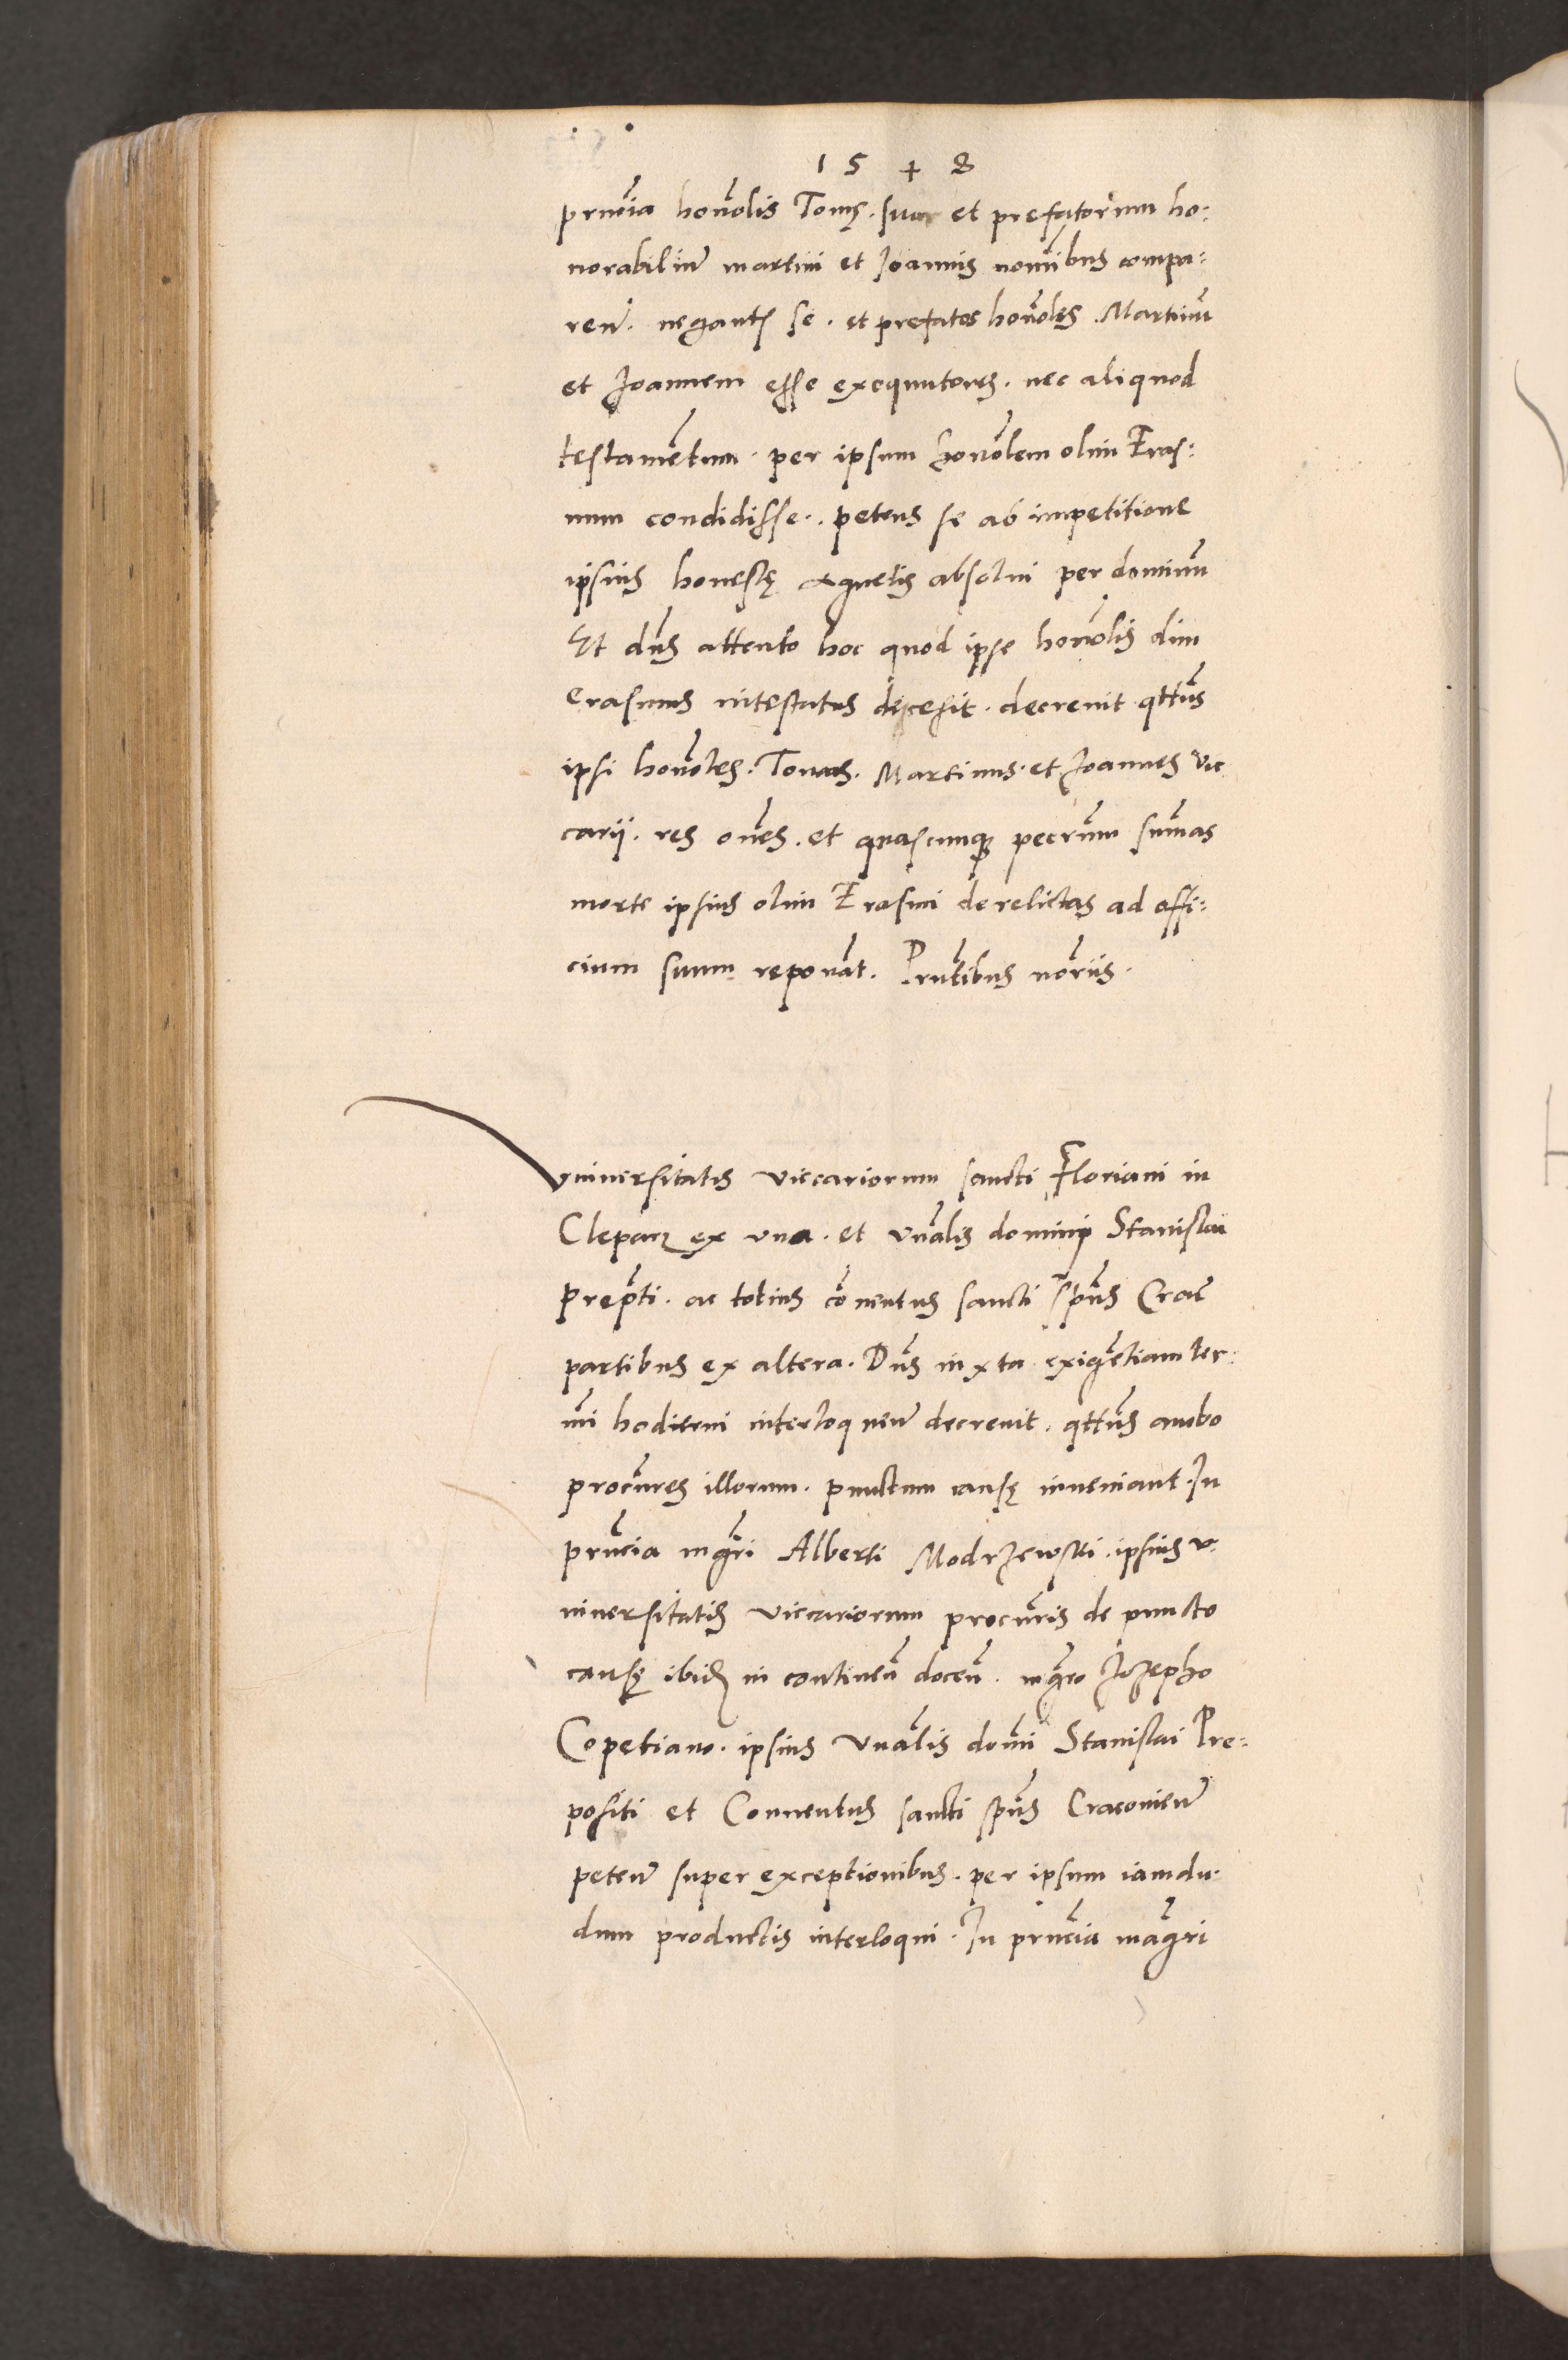 1548
prncia honolis Tomę. suo et prefatorum ho:
norabilium martini et Joannis nominibus compa:
ren. negantis se. et prefatos honoles. Martinum
et Joannem esse exequutores. nec aliquod
testamentum. per ipsum honolem olim Eras:
mum condidisse. petens se ab impetitione
ipsius honestę Agnetis absolui per dominum
Et dns attento hoc quod ipse honolis olim
Erasmus intestatus decessit. decrevit qttus
ipsi honoles. Tomas. Martinus. et Joannes Vic
carij. res omnes. et quascunque pecunnum summas
morte ipsius olim Erasmi derelictas ad offi:
cium suum reponant. Prntibus notriis.
Vniuersitatis viccariorum sancti Floriani in
Clepar ex vna. et vnalis domini Stanislai
Prepti. ac totius conuentus sancti spus Crac
partibus ex altera. Dns iuxta exigentiam ter:
mini hodierni interloquen decrevit. qttus ambo
procures illorum. punctum causę inueniant. In
prncia mgri Alberti Modrzewski. ipsius v:
niuersitatis viccariorum procuris de puncto
causę ibidem in continen docen. mgro Jozepho
Copetiano. ipsius Vnalis domini Stanislai Pre:
positi et Conuentus sancti spus Cracouien
peten super exceptionibus. per ipsum iamdu:
dum productis interloqui. In prncia magri